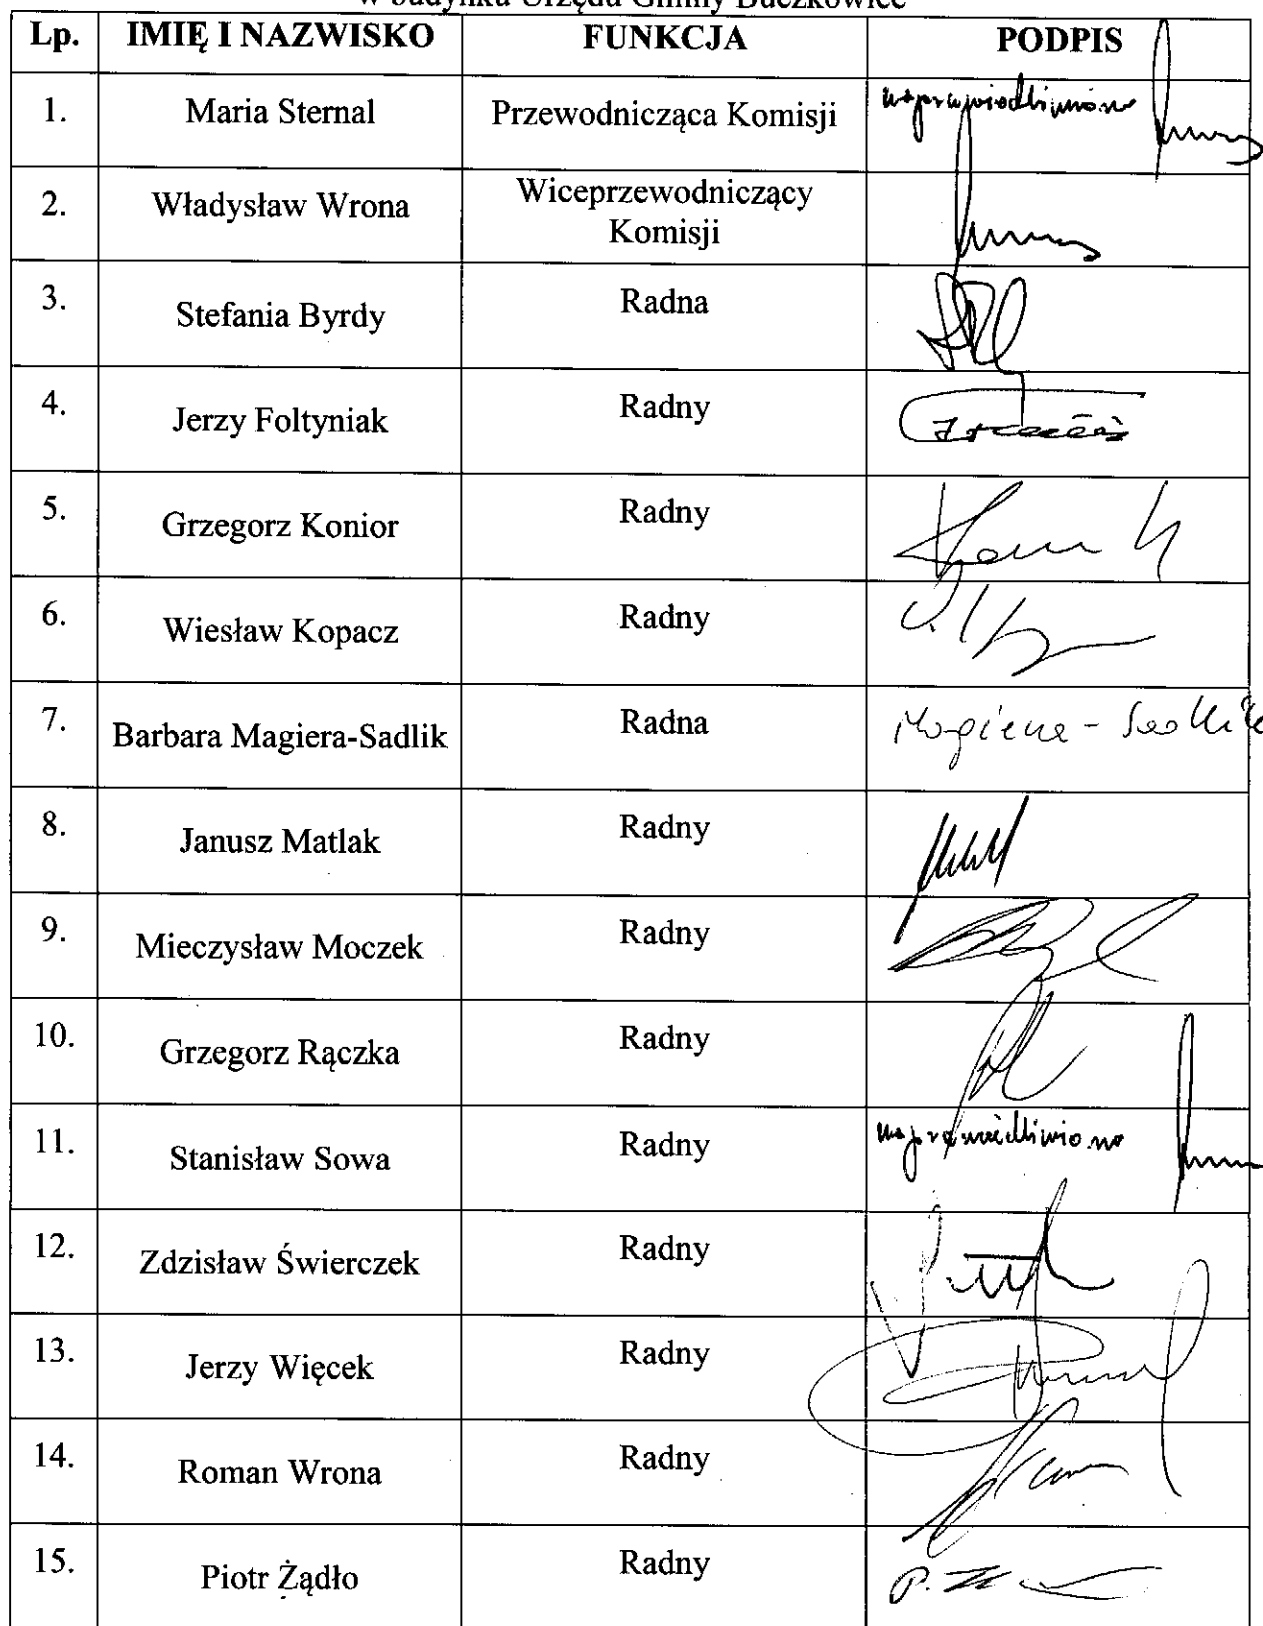 w budynku Urzędu Gminy Buczkowice
Lp. IMIĘ I NAZWISKO FUNKCJA PODPIS
1. Maria Sternal Przewodnicząca Komisji usprawiedliwiono
2. Władysław Wrona Wiceprzewodniczący
Komisji
3. Stefania Byrdy Radna
4. Jerzy Foltyniak Radny
5. Grzegorz Konior Radny
6. Wiesław Kopacz Radny
7. Barbara Magiera-Sadlik Radna Magiera - Sadlik
8. Janusz Matlak Radny
9. Mieczysław Moczek Radny
10. Grzegorz Rączka Radny
11. Stanisław Sowa Radny usprawiedliwiono
12. Zdzisław Świerczek Radny
13. Jerzy Więcek Radny
14. Roman Wrona Radny
15. Piotr Żądło Radny